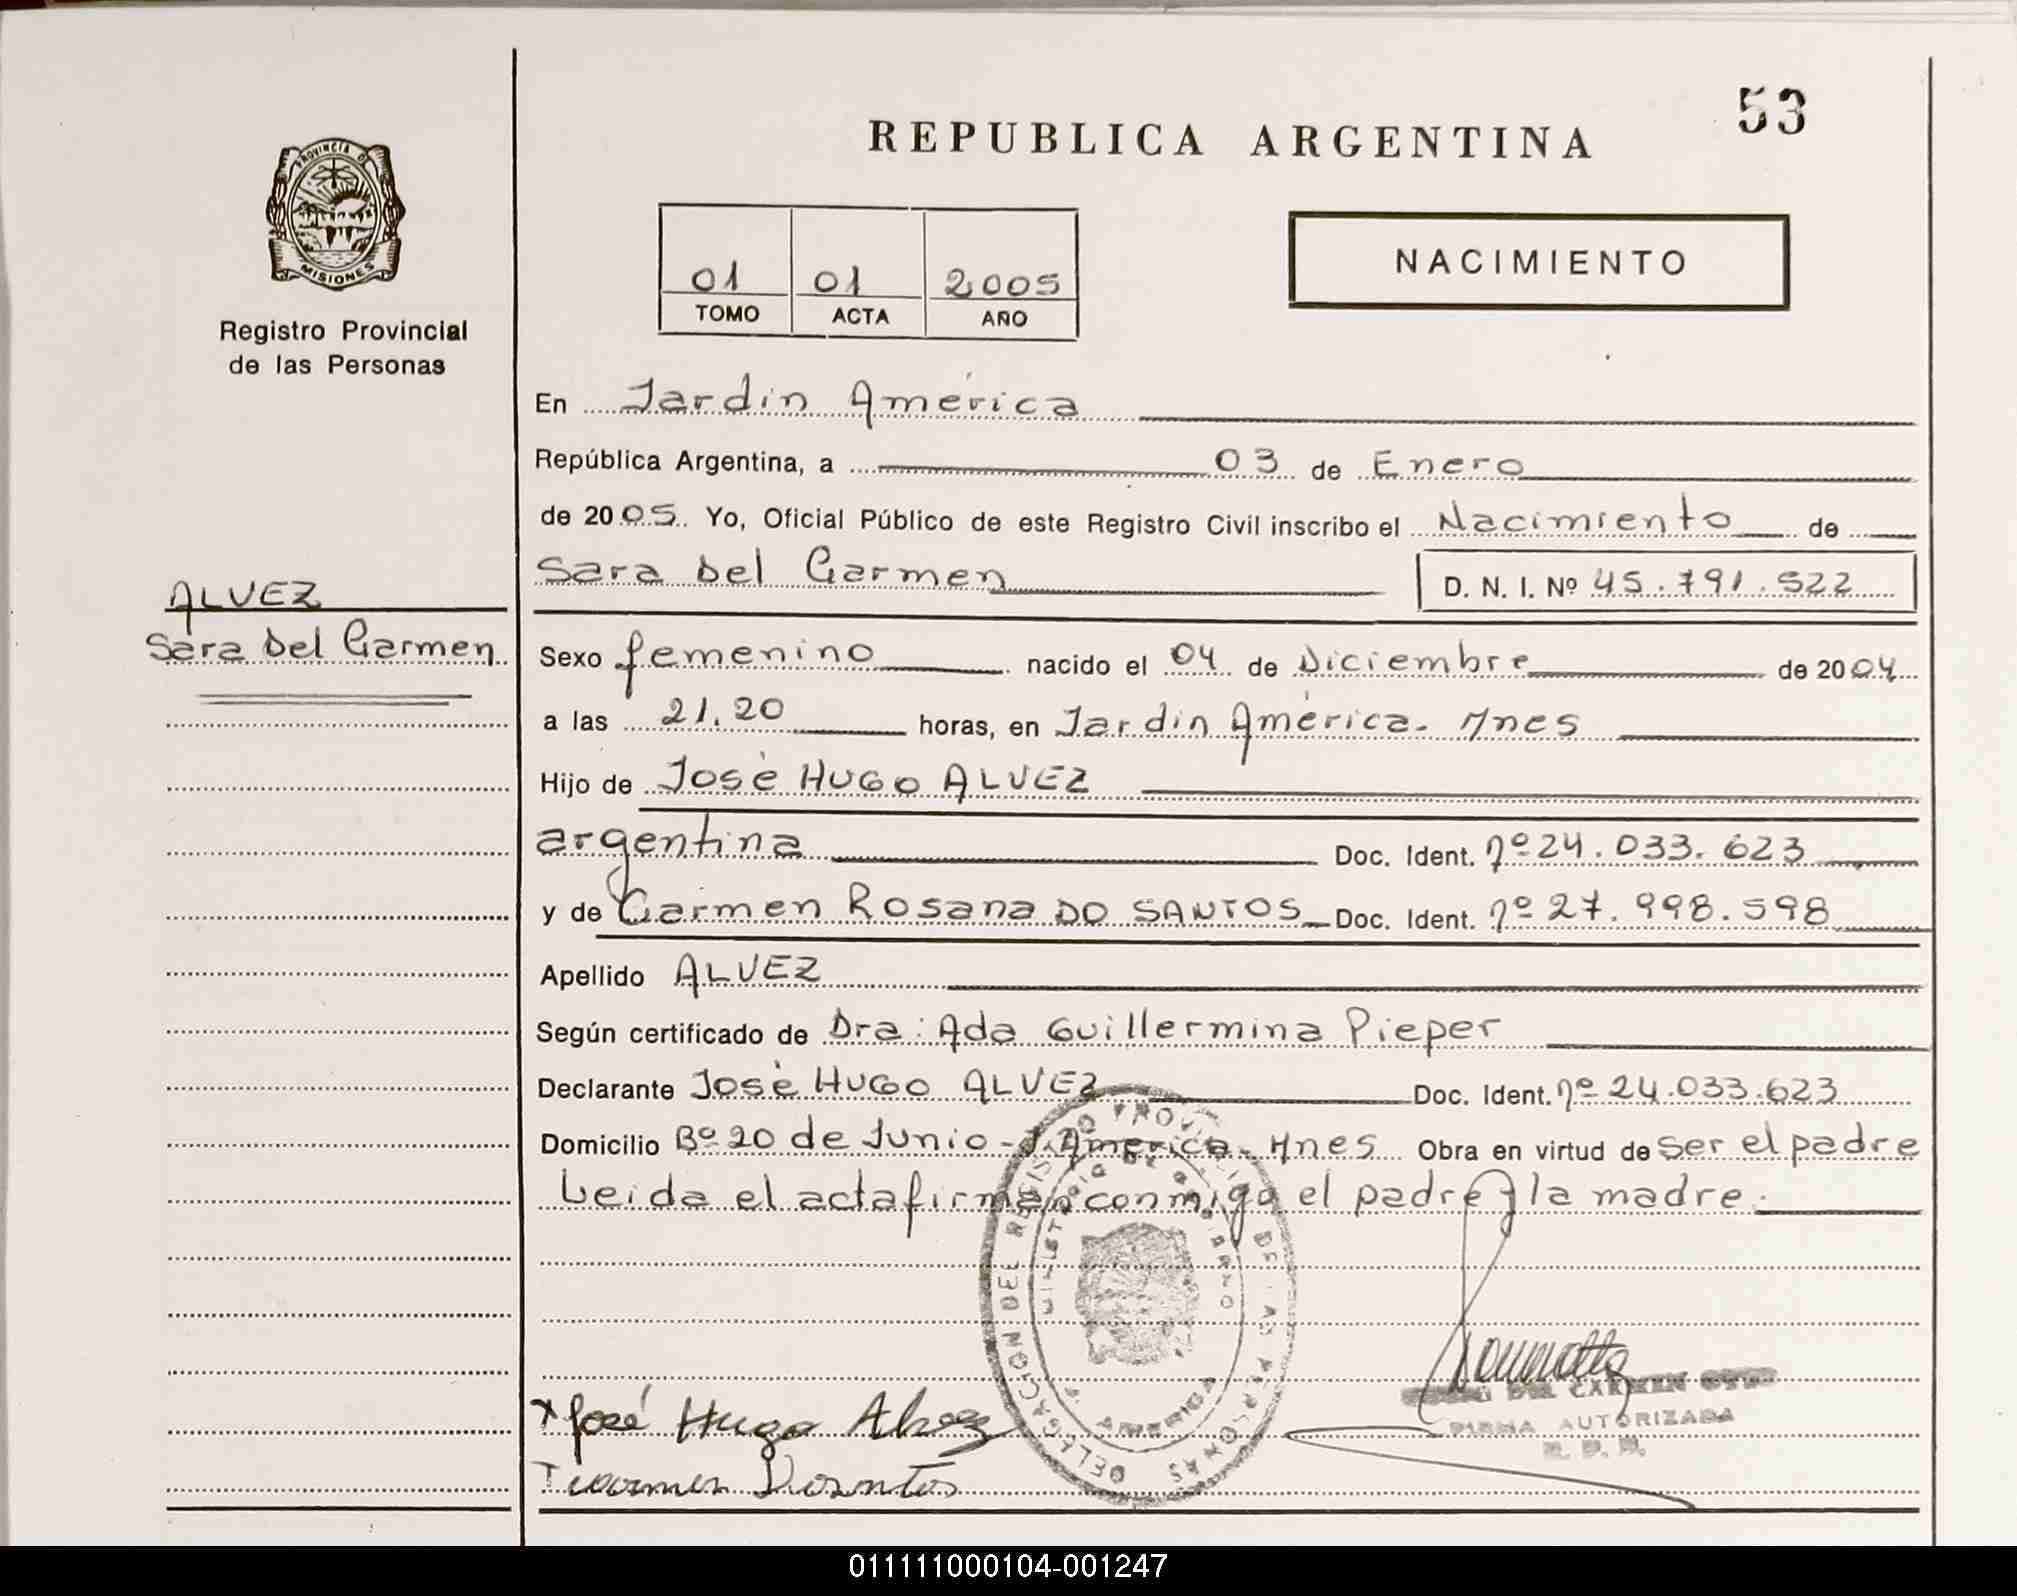 53
REPUBLICA ARGENTINA
PROVINCIA DE
MISIONES
Registro Provincial
de las Personas
01 01 2005
TOMO ACTA AÑO
NACIMIENTO
En Jardin América
República Argentina, a 03 de Enero
de 2005. Yo, Oficial Público de este Registro Civil inscribo el Nacimiento de
Sara Del Carmen D. N. I. Nº 45.791.522
ALVEZ
Sara Del Carmen
Sexo femenino nacido el 04 de Diciembre de 2004
a las 21.20 horas, en Jardin América - Mnes
Hijo de José HUGO ALVEZ
argentina Doc. Ident. nº 24.033.623
y de Carmen Rosana DO SANTOS Doc. Ident. nº 27.998.598
Apellido ALVEZ
Según certificado de Dra: Ada Guillermina Pieper
Declarante José HUGO ALVEZ Doc. Ident. nº 24.033.623
Domicilio Bº 20 de Junio - J. America - Mnes Obra en virtud de ser el padre
Leida el acta firman conmigo el padre y la madre.
DELEGACION DEL REGISTRO PROVINCIAL DE LAS PERSONAS
MINISTERIO DE GOBIERNO
J. AMERICA
DEL CARMEN
FIRMA AUTORIZADA
José Hugo Alvez
Carmen Dosantos
011111000104-001247